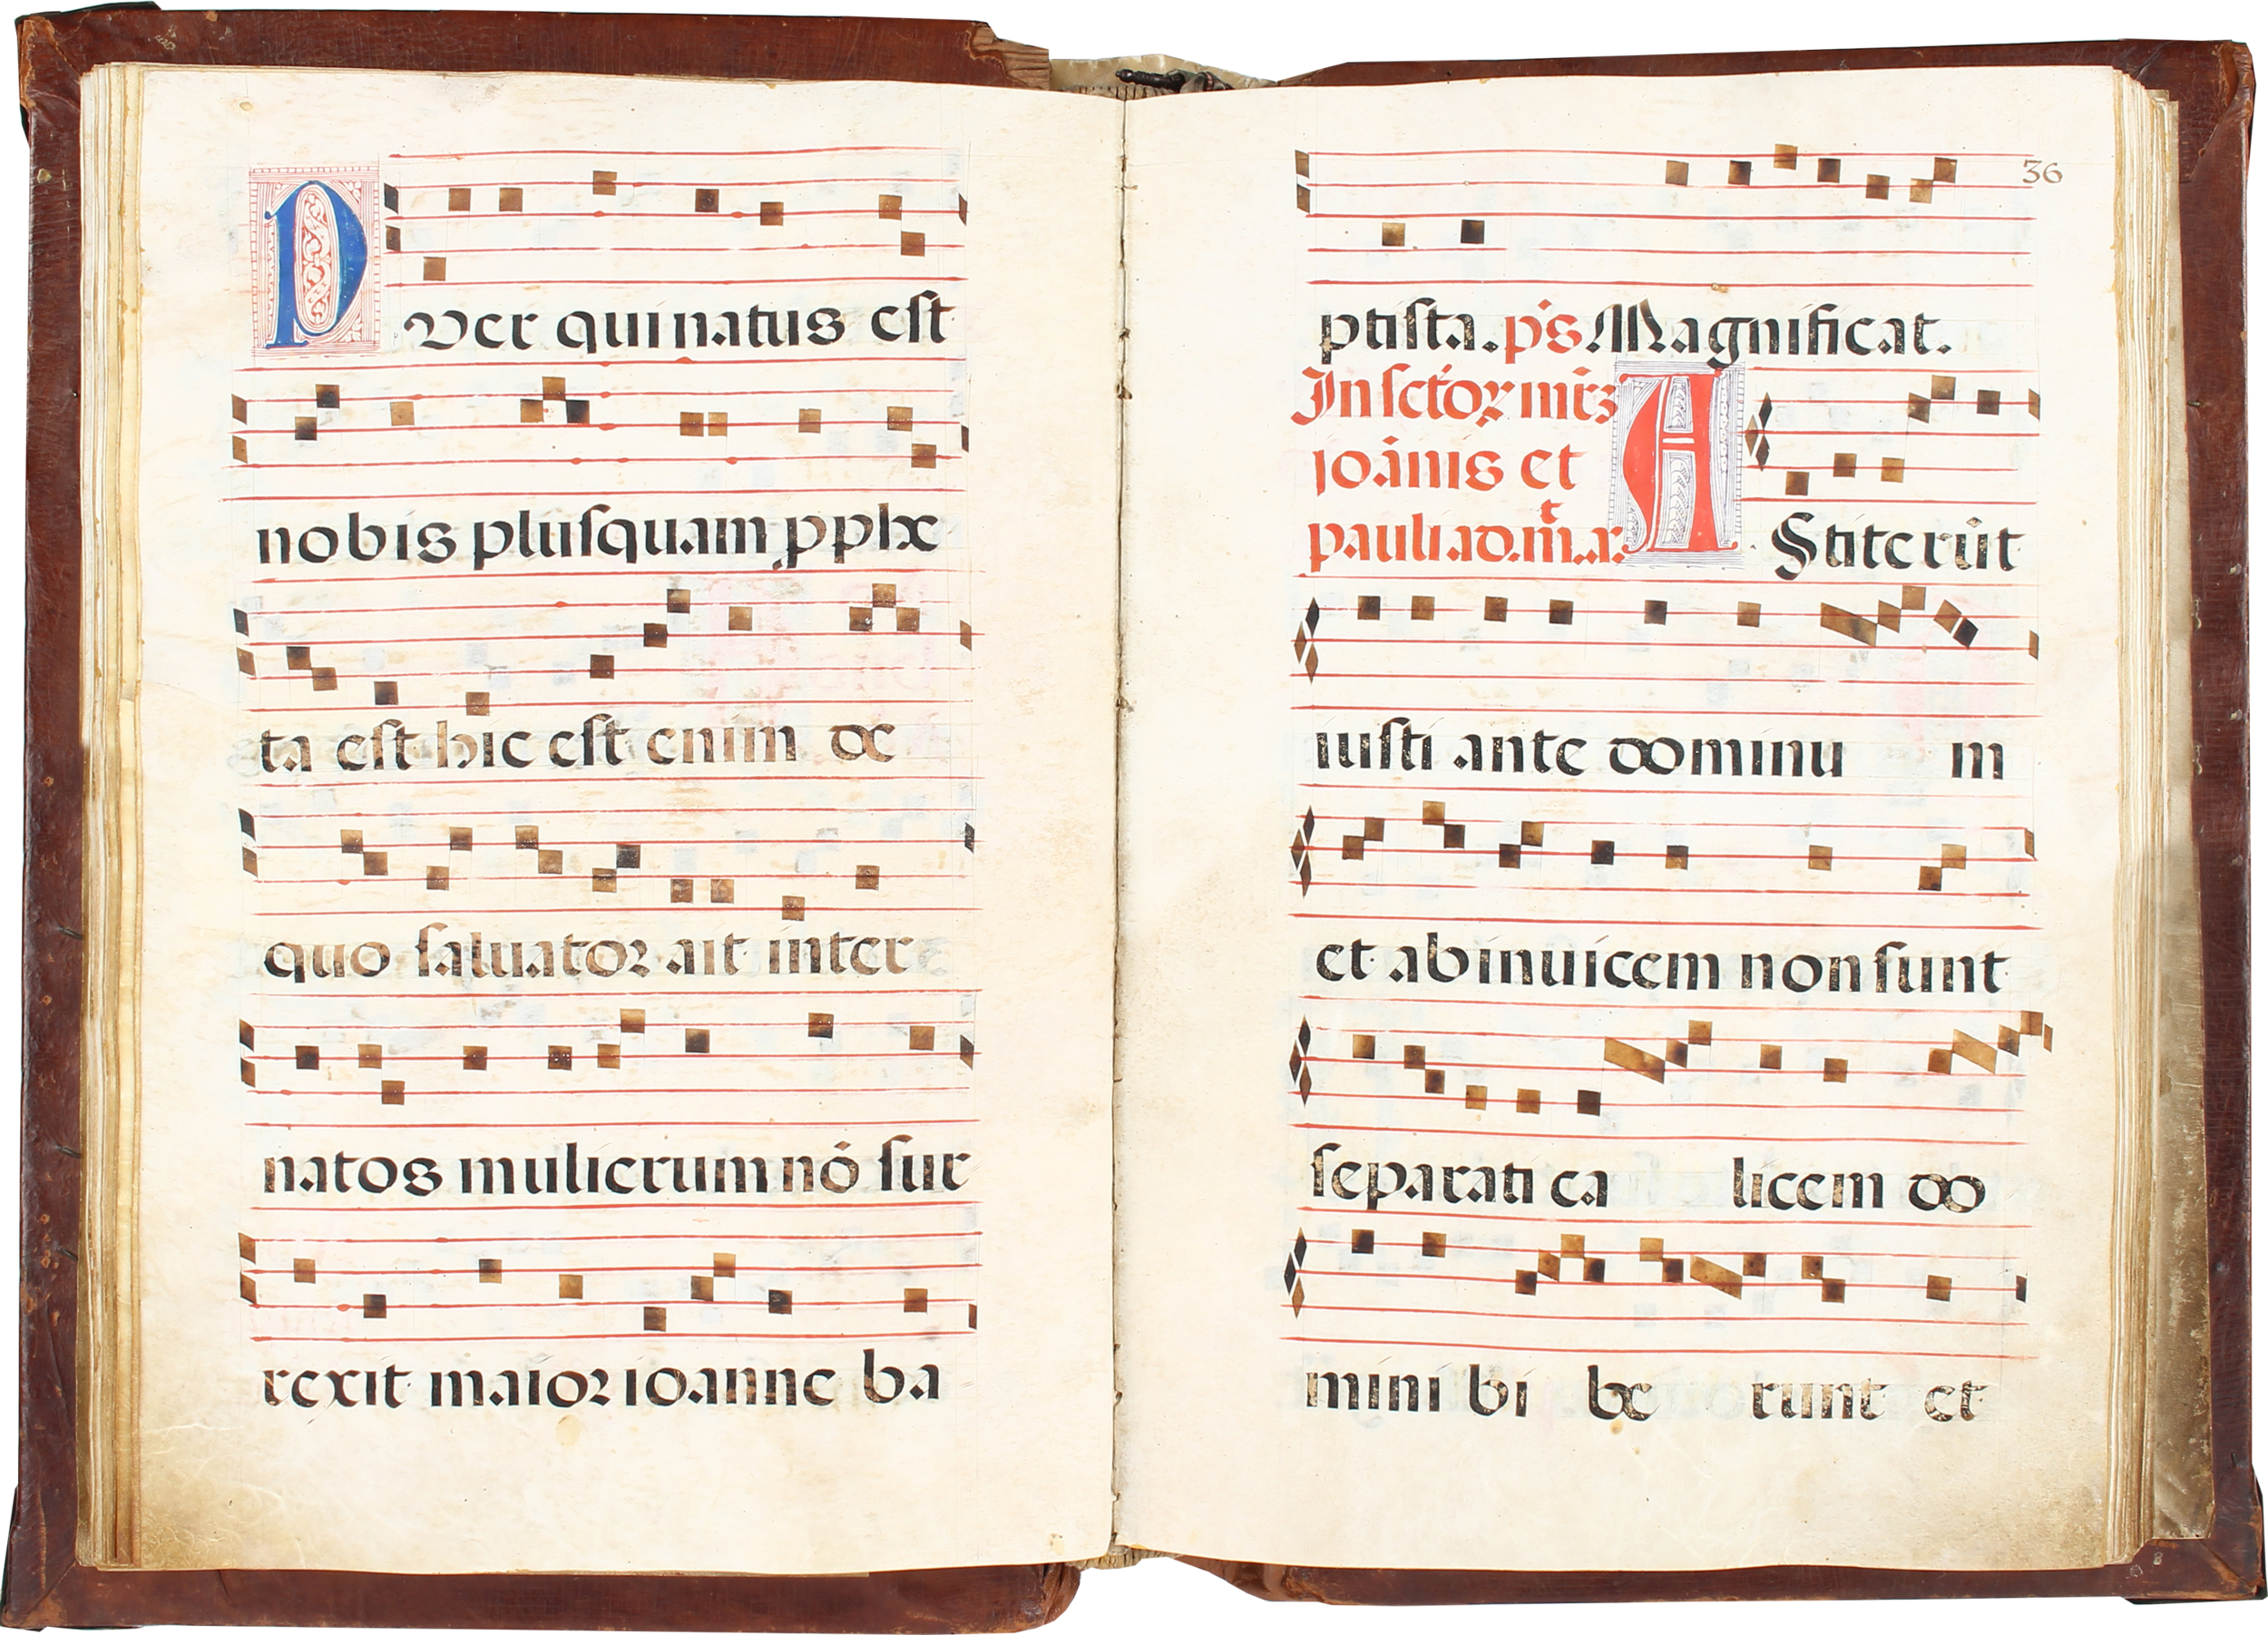 Puer qui natus eſt
nobis pluſquam ꝓphe
ta eſt hic eſt enim de
quo ſaluatoꝛ ait inter
natos mulierum nō ſur
rexit maioꝛ ioanne ba
36
ptiſta. p̄s Magnificat.
In ſctōꝝ mr̄ꝫ
ioānis et
pauli ad.m̄.a.
AStiterūt
iuſti ante dominu m
et abinuicem non ſunt
ſeparati ca licem do
mini bi be runt et